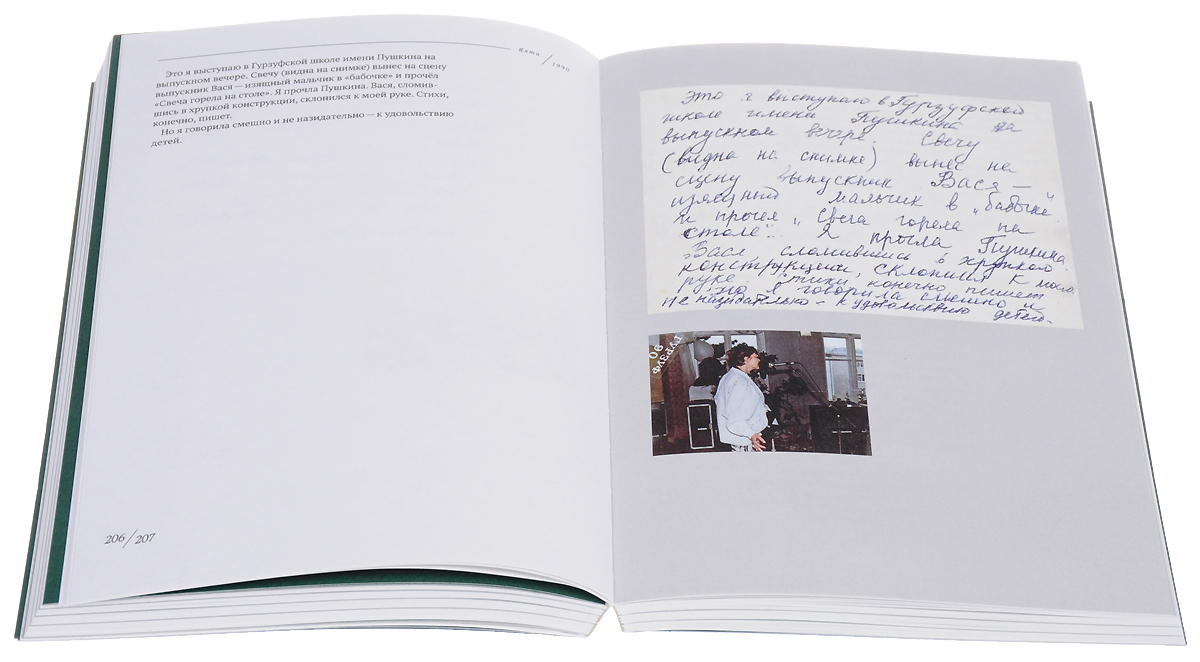 Ялта / 1990
Это я выступаю в Гурзуфской школе имени Пушкина на
выпускном вечере. Свечу (видна на снимке) вынес на сцену
выпускник Вася — изящный мальчик в «бабочке» и прочёл
«Свеча горела на столе». Я прочла Пушкина. Вася, сломив-
шись в хрупкой конструкции, склонился к моей руке. Стихи,
конечно, пишет.
Но я говорила смешно и не назидательно — к удовольствию
детей.
206/207
Это я выступаю в Гурзуфской
школе имени Пушкина на
выпускном вечере. Свечу
(видна на снимке) вынес на
сцену выпускник Вася —
изящный мальчик в „бабочке"
и прочел „Свеча горела на
столе". Я прочла Пушкина.
Вася, сломившись в хрупкой
конструкции, склонился к моей
руке. Стихи, конечно пишет
Но я говорила смешно и
не назидательно – к удовольствию детей.
ГУРЗУФ
90